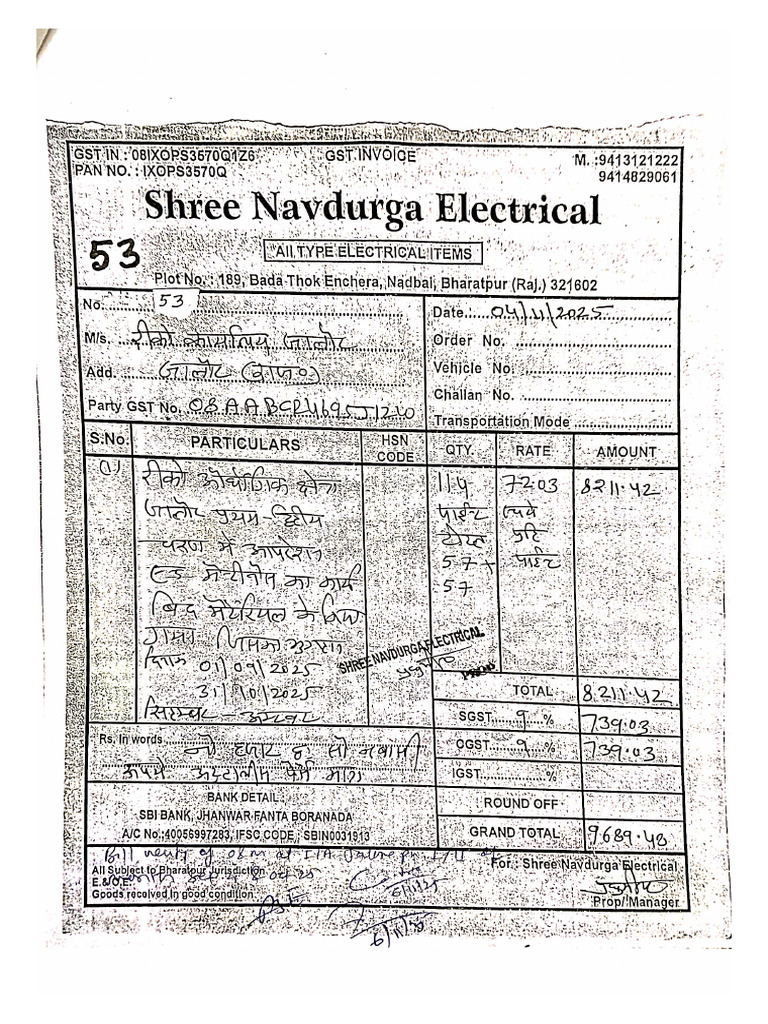 GST IN : 08IXOPS3570Q1Z6 GST INVOICE M. :9413121222
PAN NO. : IXOPS3570Q 9414829061
Shree Navdurga Electrical
53
All TYPE ELECTRICAL ITEMS
Plot No. : 189, Bada Thok Enchera, Nadbai, Bharatpur (Raj.) 321602
No. 53 Date : 04/11/2025
M/s. रीको कार्यालय जालोर Order No.
Add. जालोर (राज०) Vehicle No.
Challan No.
Party GST No. 08AABCR4695J1Z0
Transportation Mode
S.No. PARTICULARS HSN CODE QTY. RATE AMOUNT
(1) रीको औद्योगिक क्षेत्र 114 72.03 8211.42
जालोर प्रथम-द्वितीय पाईंट रूपये
चरण में आपरेशन प्रति
एंड मेंटीनेंस का कार्य 57+ पाईंट
57
विद मेटेरियल के किया
गया जिसका
दिनांक 01/09/2025
31/10/2025
SHREE NAVDURGA ELECTRICAL
PROP
सितम्बर - अक्टूबर
TOTAL 8211.42
SGST 9 % 739.03
Rs. In words नौ हजार छः सौ नवासी CGST 9 % 739.03
रूपये अड़तालीस पैसे मात्र IGST %
BANK DETAIL : ROUND OFF
SBI BANK, JHANWAR FANTA BORANADA
A/C No.:40056997283, IFSC CODE : SBIN0031913 GRAND TOTAL 9689.48
Bill verify of O&M at I/A
All Subject to Bharatpur Jurisdiction For : Shree Navdurga Electrical
E.&.O.E.
Goods received in good condition
6/11/25
Prop/ Manager
6/11/25